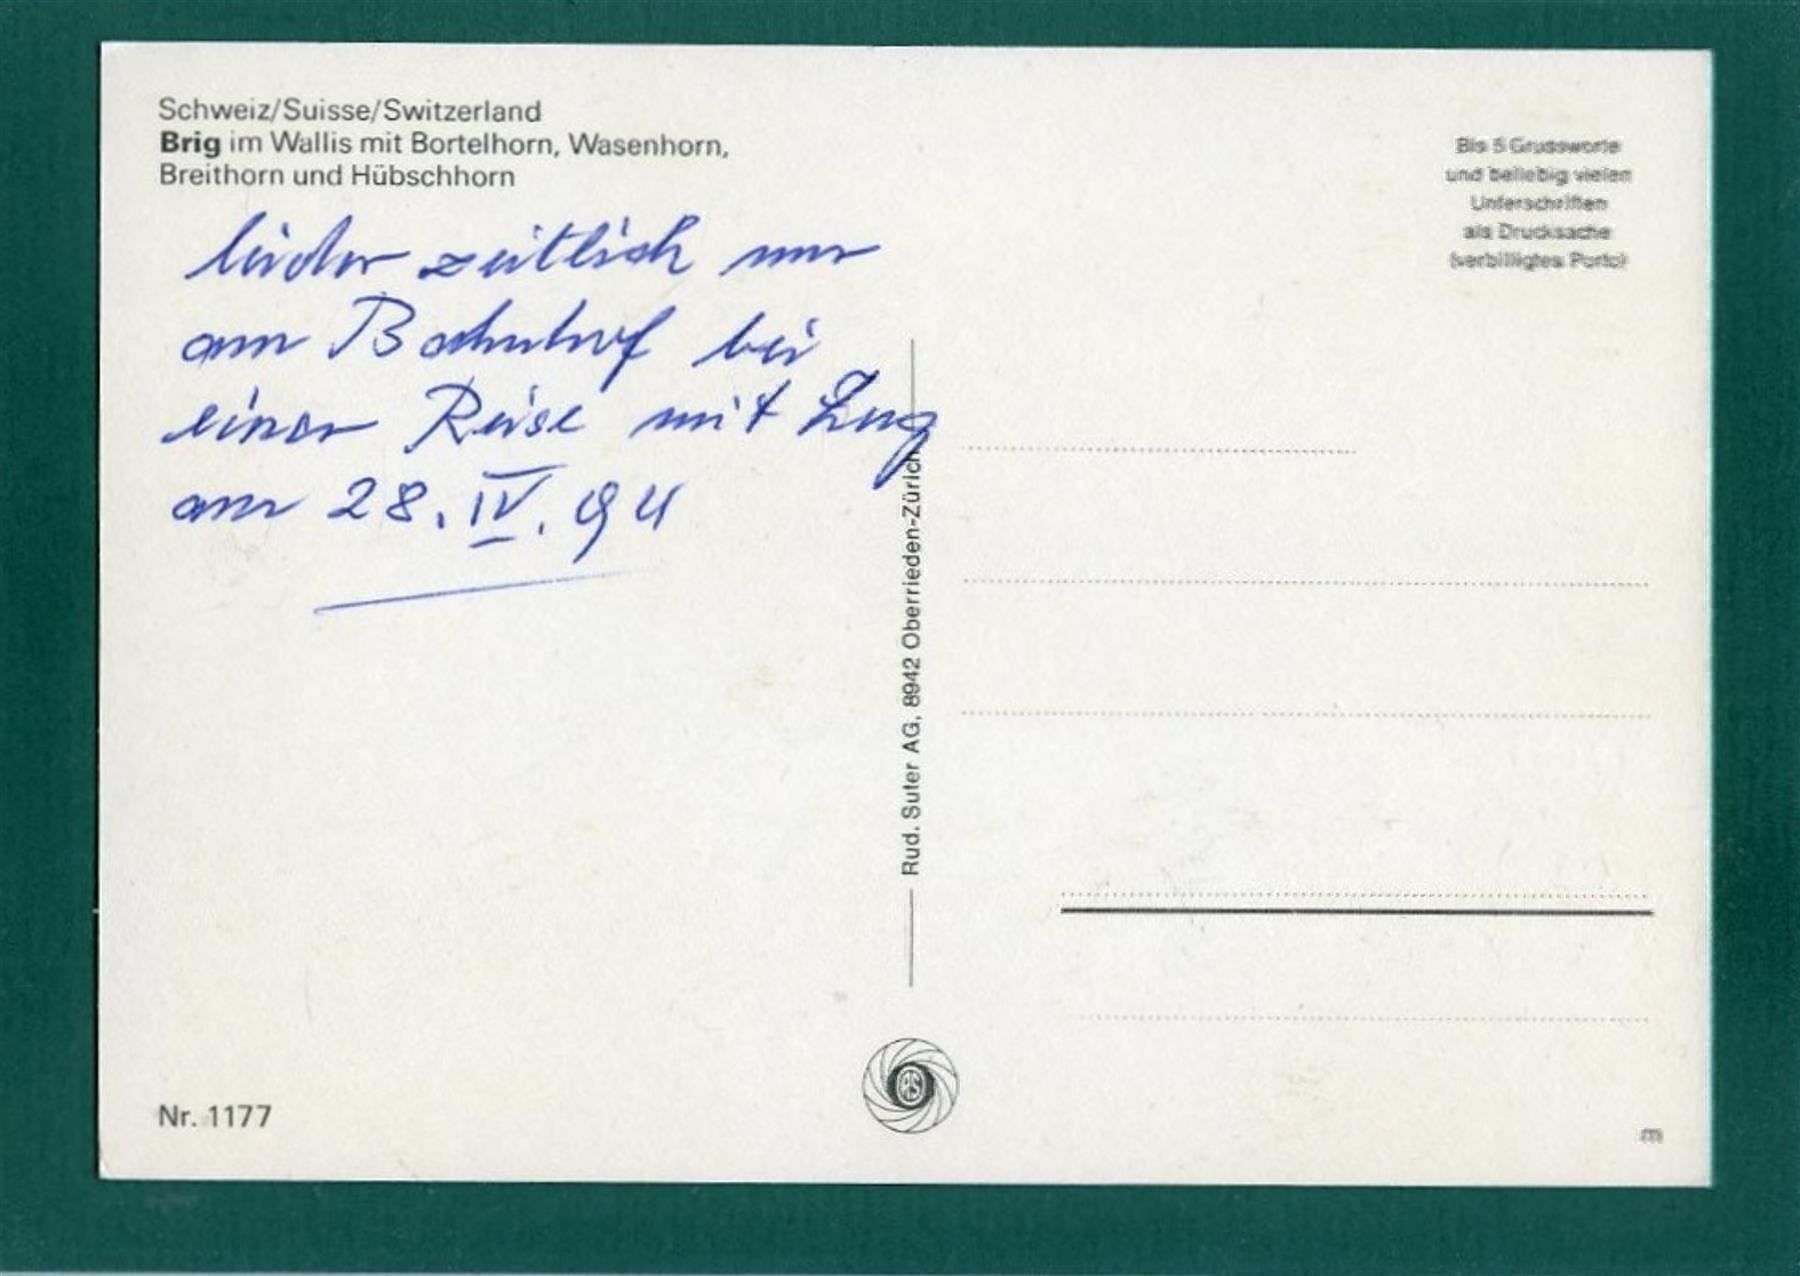 Schweiz/Suisse/Switzerland
Brig im Wallis mit Bortelhorn, Wasenhorn,
Breithorn und Hübschhorn
leider zeitlich nur
am Bahnhof bei
einer Reise mit Zug
am 28. IV. 94
Rud. Suter AG, 8942 Oberrieden-Zürich
Bis 5 Grussworte
und beliebig vielen
Unterschriften
als Drucksache
(verbilligtes Porto)
RS
Nr. 1177
m